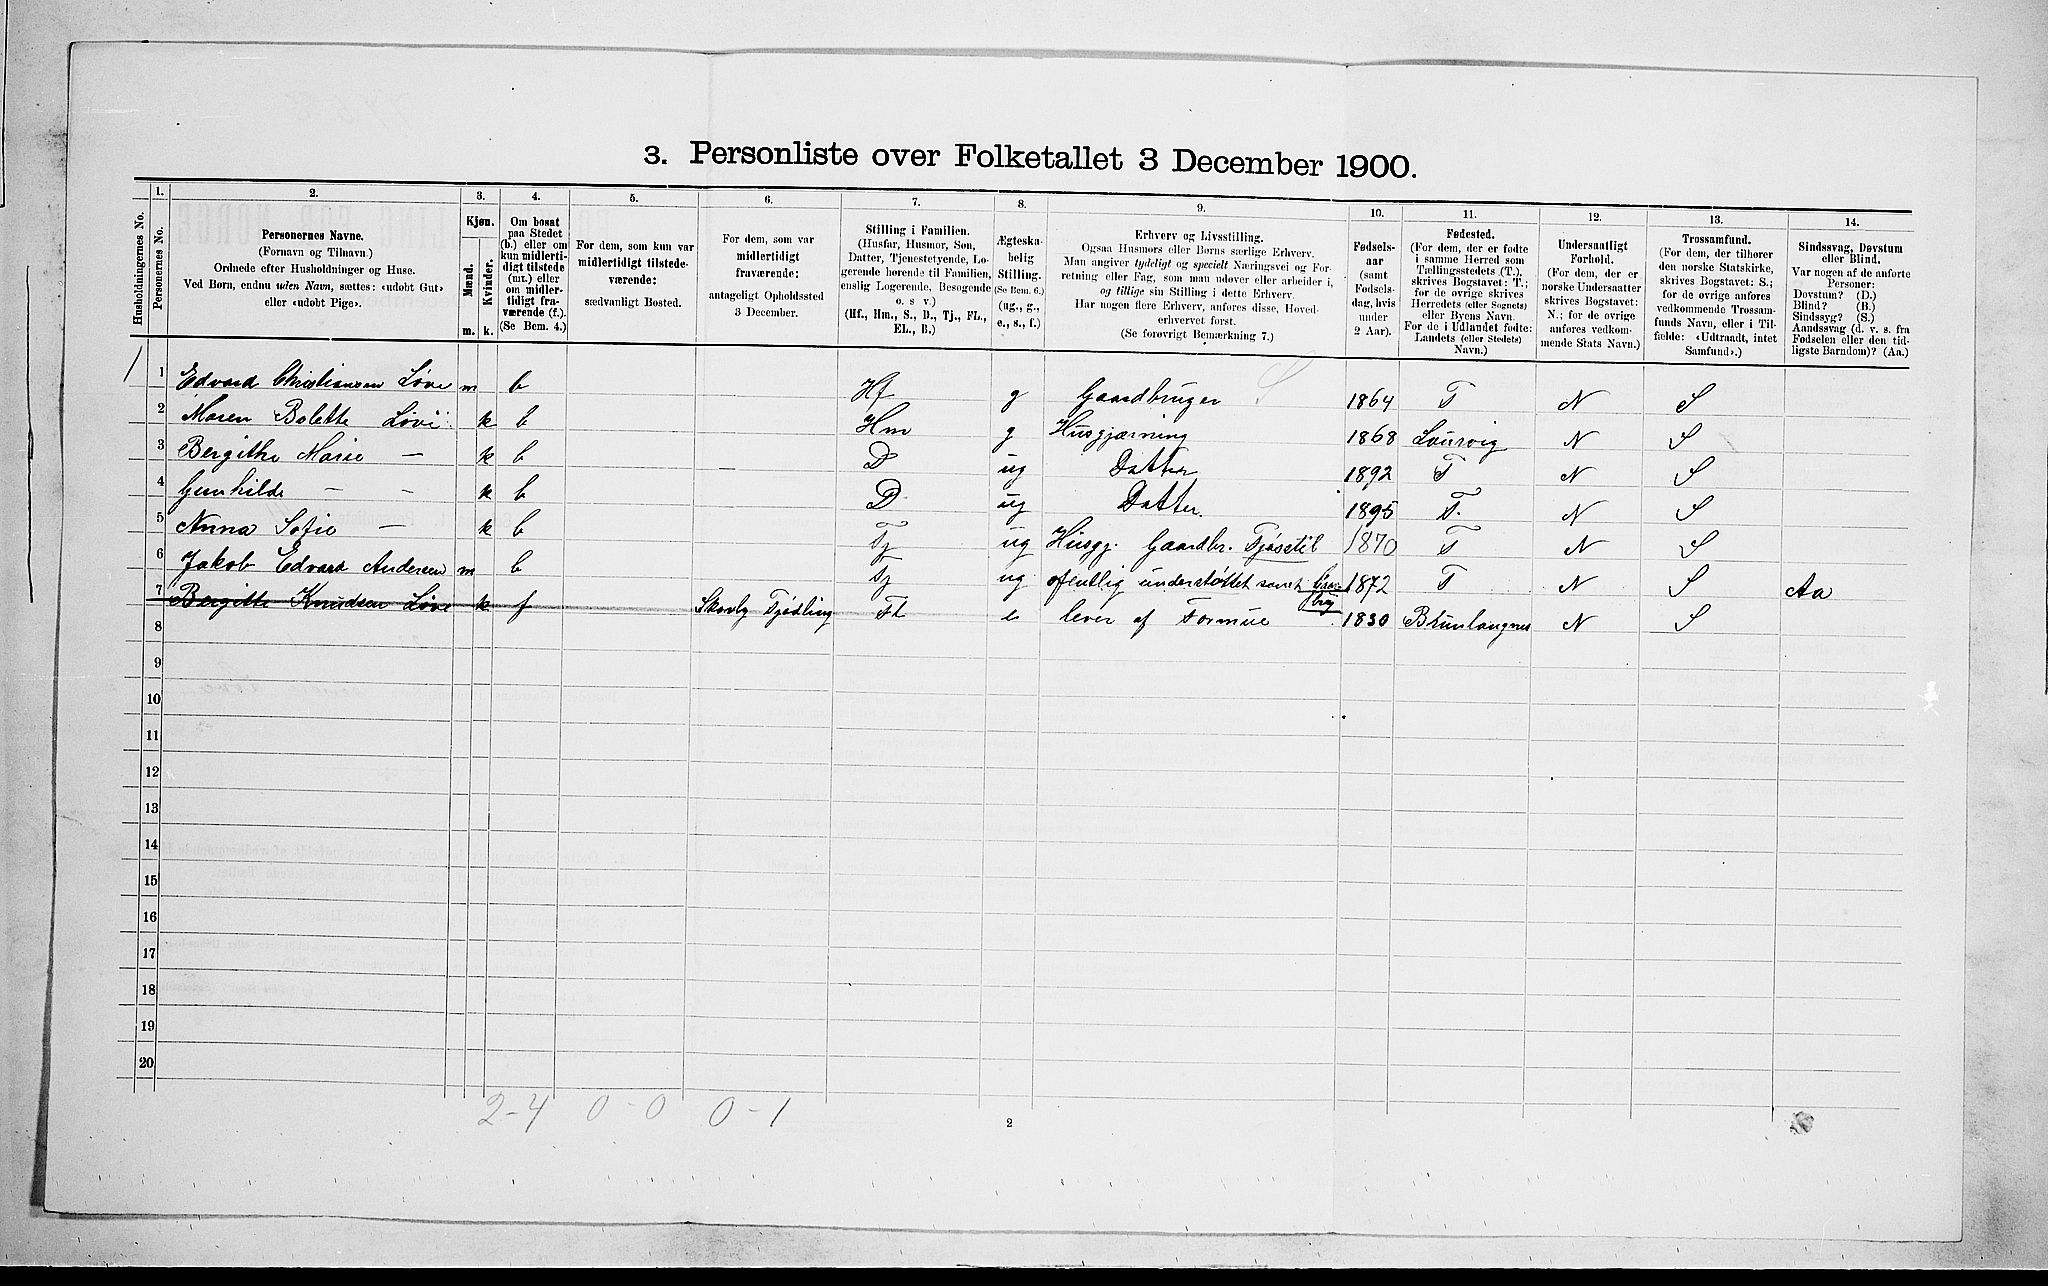 3. Personliste over Folketallet 3 December 1900.
1. 2. 3. 4. 5. 6. 7. 8. 9. 10. 11. 12. 13. 14.
Husholdningernes No.
Personernes No.
Personernes Navne.
(Fornavn og Tilnavn.)
Ordnede efter Husholdninger og Huse.
Ved Børn, endnu uden Navn, sættes: «udøbt Gut»
eller «udøbt Pige».
Kjøn.
Mænd.
Kvinder.
m. k.
Om bosat
paa Stedet
(b.) eller om
kun midlerti-
digt tilstede
(mt.) eller
om midler-
tidigt fra-
værende (f.).
(Se Bem. 4.)
For dem, som kun var
midlertidigt tilstede-
værende:
sædvanligt Bosted.
For dem, som var
midlertidigt
fraværende:
antageligt Opholdssted
3 December.
Stilling i Familien.
(Husfar, Husmor, Søn,
Datter, Tjenestetyende, Lo-
gerende hørende til Familien,
enslig Logerende, Besøgende
o. s v.)
(Hf., Hm., S., D., Tj., FL.,
EL., B.)
Ægteska-
belig
Stilling.
(Se Bem. 6.)
(ug., g.,
e., s., f.)
Erhverv og Livsstilling.
Ogsaa Husmors eller Børns særlige Erhverv.
Man angiver tydeligt og specielt Næringsvei og For-
retning eller Fag, som man udøver eller arbeider i,
og tillige sin Stilling i dette Erhverv.
Har nogen flere Erhverv, anføres disse, Hoved-
erhvervet først.
(Se forøvrigt Bemærkning 7.)
Fødsels-
aar
(samt
Fødsels-
dag, hvis
under
2 Aar).
Fødested.
(For dem, der er fødte
i samme Herred som
Tællingsstedets (T.),
skrives Bogstavet: T.;
for de øvrige skrives
Herredets (eller Sognets)
eller Byens Navn.
For de i Udlandet fødte:
Landets (eller Stedets)
Navn.)
Undersaatligt
Forhold.
(For dem, der er
norske Undersaatter
skrives Bogstavet:
N.; for de øvrige
anføres vedkom-
mende Stats Navn.)
Trossamfund.
(For dem, der tilhører
den norske Statskirke,
skrives Bogstavet: S.;
for de øvrige anføres
vedkommende Trossam-
funds Navn, eller i Til-
fælde: «Udtraadt, intet
Samfund».)
Sindssvag, Døvstum
eller Blind.
Var nogen af de anførte
Personer:
Døvstum? (D.)
Blind? (B.)
Sindssyg? (S.)
Aandssvag (d. v. s. fra
Fødselen eller den tid-
ligste Barndom)? (Aa.)
1 1 Edvard Christiansen Løve m b Hf g Gaardbruger S 1864 T N S
2 Maren Bolette Løve k b Hm g Husgjærning 1868 Laurvig N S
3 Bergithe Marie — k b D ug Datter 1892 T N S
4 Gunhilde — — k b D ug Datter. 1895 T. N S
5 Anna Sofie — k b Tj ug Husgj. Gaardbr. Fjøsstel 1870 T N S
6 Jakob Edvard Andersen m b Tj ug ofentlig understøttet samt 1872 T N S Aa
7 Bergitte Knudsen Løve k f Tjødling Fl e lever af Formue 1830 Brunlangnes N S
8
9
10
11
12
13
14
15
16
17
18
19
20
2-4 0-0 0-1
2